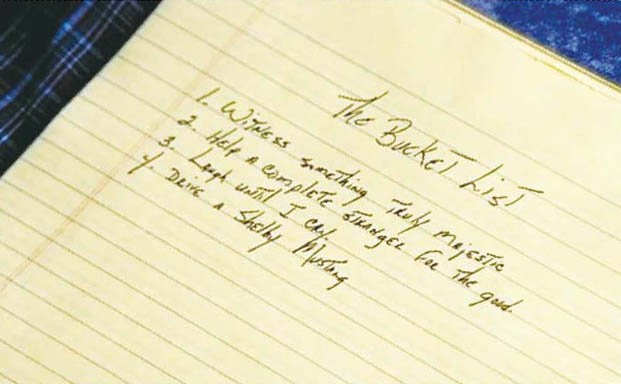 The Bucket List
1. Witness something truly majestic
2. Help a complete stranger for the good.
3. Laugh until I cry
4. Drive a Shelby Mustang